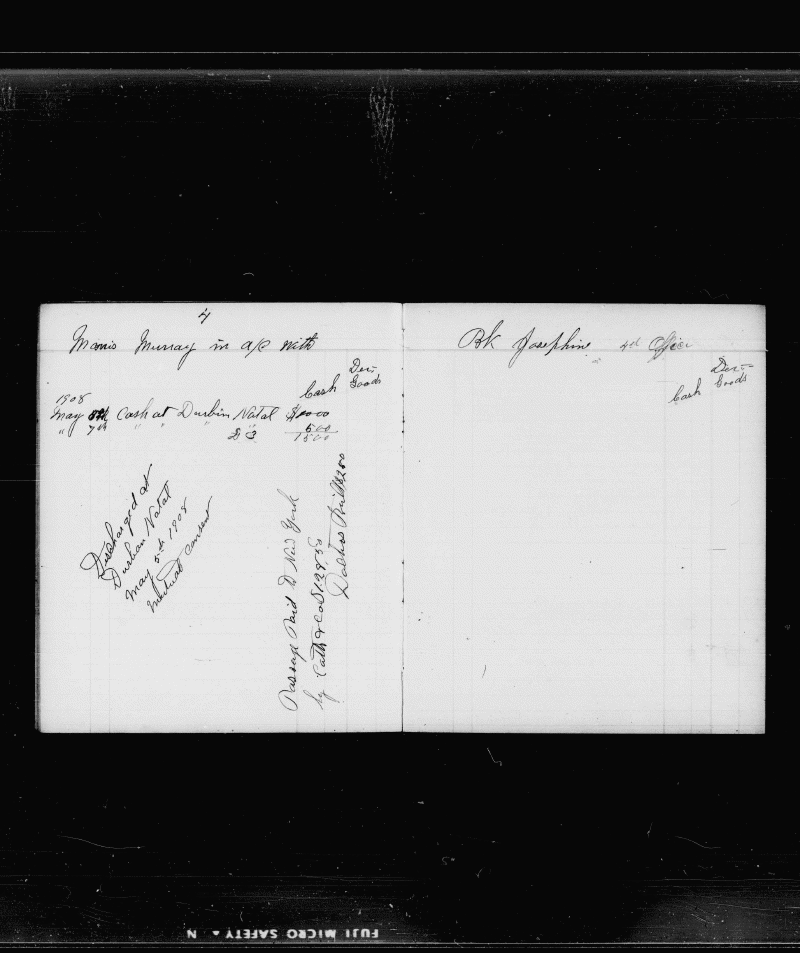 4
Morris Murray in a/c with
Cash
Dec--
Goods
1908
May 5th Cash at Durbin Natal $10 00
" 7th " " " " 5 00
£3 15 00
Discharged at
Durban Natal
May 5th 1908
mutual consent
Passage Paid to New York
by Cath & Co $128 50
Doctors Bill $2 50
Bk Josephine 4d Officer
Cash
Dec--
Goods
FUJI MICRO SAFETY ▲ N